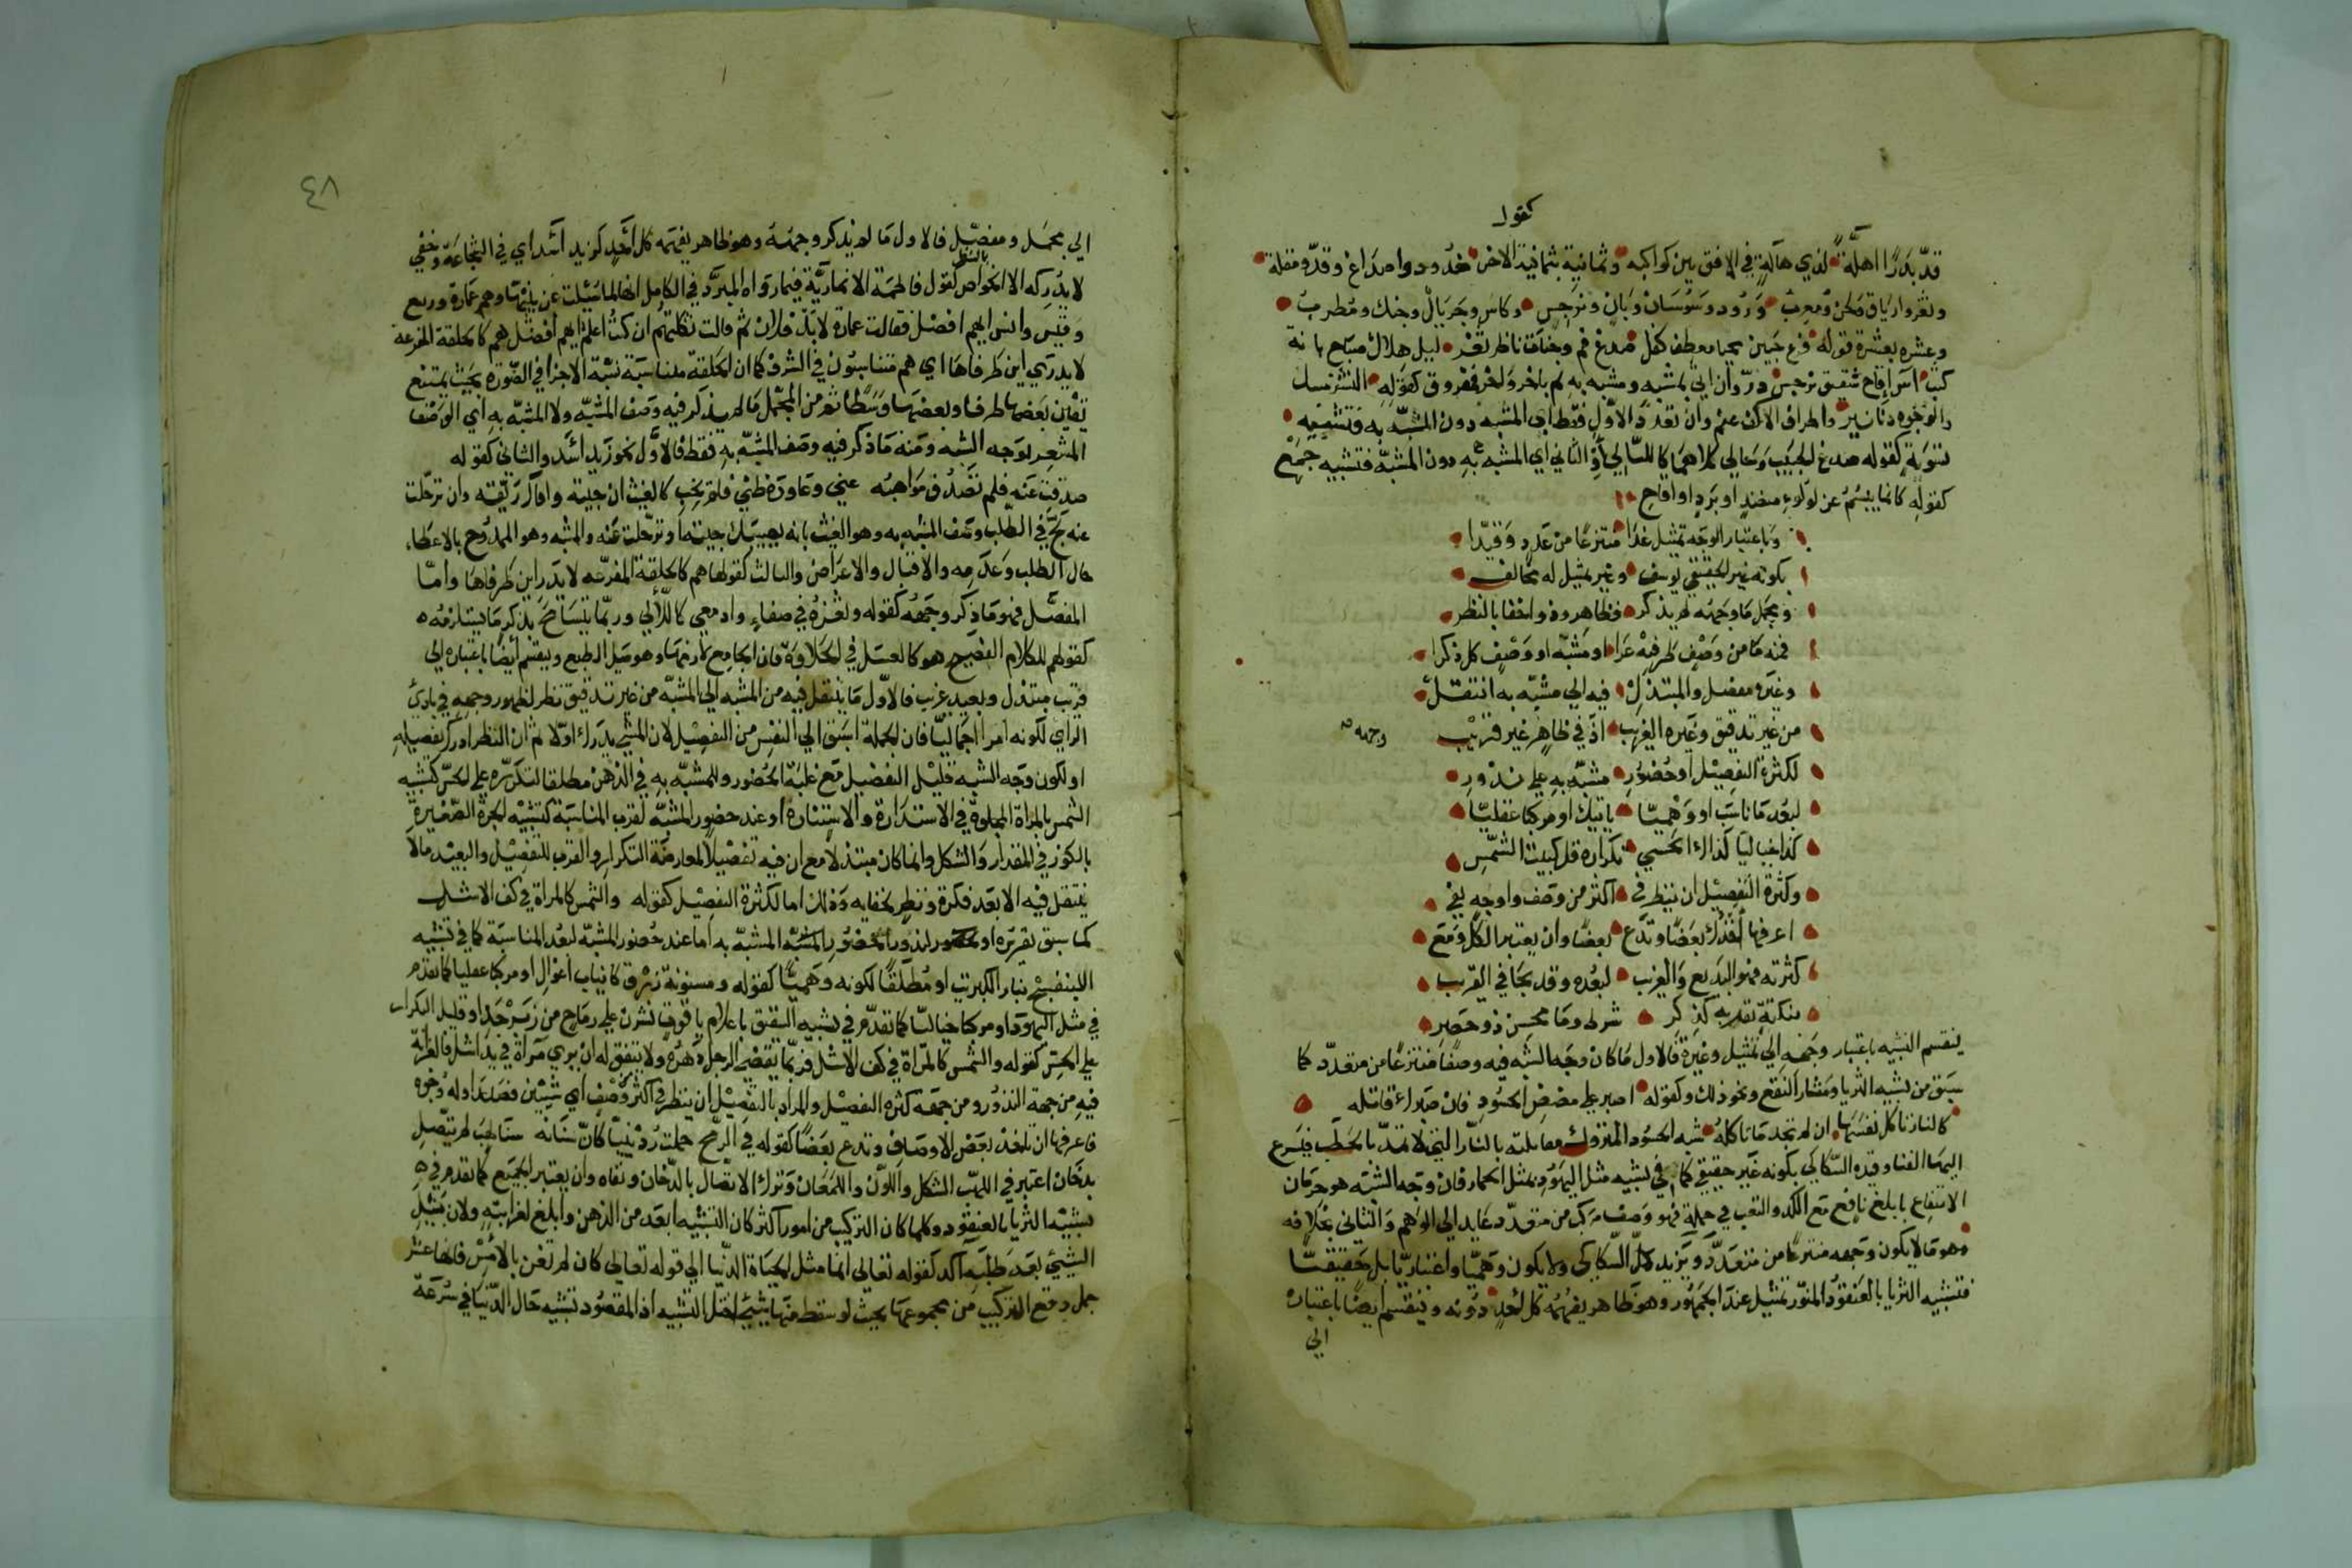 كقول
قد بدرا اهلة لذي هالة في الافق بين كواكبه وثمانية بثمانية الاخر خدود واصداغ وقد ومقلة
وثغر وارياق ولحن ومعرب ورود وسوسان وبان ونرجس وكاس وجريال وجنك ومطرب
وعشرة بعشرة قوله فرع جبين محيا معطف كفل صدغ فم وجنات ناظر ثغر ليل هلال صباح بانة
كثب آس اقاح شقيق نرجس در وان اتي بمشبه ومشبه به ثم باخر واخر فمفروق كقوله النشر مسك
والوجوه دنانير واطراف الاكف عنم وان تعدد الاول فقط اي المشبه دون المشبه به فتشبيه
تسوية كقوله صدغ الحبيب وحالي كلاهما كالليالي او الثاني اي المشبه به دون المشبه فتشبيه جمع
كقوله كانما يبسم عن لؤلؤ منضد او برد او اقاح
وباعتبار الوجه تمثيل غدا منتزعا من عدد وقيدا
بكونه غير الحقيقي يوسف وغير تمثيل له مخالف
ومجمل ما وجهه لم يذكر فظاهر وذو اختفا بالنظر
فمنه ما من وصف طرفيه عرا او مشبه او وصف كل ذكرا
وغيره مفصل والمبتذل فيه الي مشبه به انتقل
من غير تدقيق وغيره الغريب اذ في ظاهر غير قريب
وجهه
لكثرة التفصيل او حضور مشبه به علي ندور
لبعد ما ناسب او وهميا ياتيك او مركبا عقليا
كذا خياليا كذاك الحسي تكراره قل كبيت الشمس
وكثرة التفصيل ان ينظر في اكثر من وصف واوجه يفي
اعرفها اخذك بعضا وتدع بعضا وان يعتبر الكل ومع
كثرته فهو البديع والغريب لبعده وقد يجا في القريب
بنكتة تغربه كذكر شرط وما محسن ذو حصر
ينقسم التشبيه باعتبار وجهه الي تمثيل وغيره فالاول ما كان وجه الشبه فيه وصفا منتزعا من متعدد كما
سبق من تشبيه الثريا ومثار النقع ونحو ذلك وكقوله اصبر علي مضض الحسود فان صبرك قاتله
كالنار تاكل نفسها ان لم تجد ما تاكله شبه الحسود المتروك مقابلته بالنار التي لا تمد بالحطب فيسرع
اليها الفنا وقيده السكاكي بكونه غير حقيقي كما في تشبيه مثل اليهود بمثل الحمار فان وجه الشبه هو حرمان
الانتفاع بابلغ نافع مع الكد والتعب في حمله فهو وصف مركب من متعدد عايد الي الوهم والثاني بخلافه
وهو ما لا يكون وجهه منتزعا من متعدد ويزيد السكاكي ولا يكون وهميا واعتباريا بل حقيقيا
فتشبيه الثريا بالعنقود المنور تمثيل عند الجمهور وهو ظاهر يفهمه كل احد دونه وينقسم ايضا باعتباره
الي
٤٨
الي مجمل ومفصل فالاول ما لم يذكر وجهه وهو ظاهر يفهمه كل احد كزيد اسد اي في الشجاعة وخفي
بالنظر
لا يدركه الا الخواص كقول فاطمة الانمارية فيما رواه المبرد في الكامل انها لما سئلت عن بنيها وهم عمارة وربيع
وقيس وانس ايهم افضل فقالت عمارة لا بل فلان ثم قالت ثكلتهم ان كنت اعلم ايهم افضل هم كالحلقة المفرغة
لا يدري اين طرفاها اي هم متناسبون في الشرف كما ان الحلقة متناسبة نسبة الاجزا في الصورة بحيث يمتنع
تعيين بعضها طرفا وبعضها وسطا ثم من المجمل ما لم يذكر فيه وصف المشبه ولا المشبه به اي الوصف
المشعر بوجه الشبه ومنه ما ذكر فيه وصف المشبه به فقط فالاول نحو زيد اسد والثاني كقوله
صدفت عنه فلم تصدف مواهبه عني وعاوده ظني فلم يخب كالغيث ان جيته وافاك ريقه وان ترحلت
عنه لج في الطلب وصف المشبه به وهو الغيث بانه يصيبك جيته او ترحلت عنه والمشبه وهو الممدوح بالاعطاء
حال الطلب وعدمه والاقبال والاعراض والثالث كقولها هم كالحلقة المفرغة لا يدر اين طرفاها واما
المفصل فهو ما ذكر وجهه كقوله وثغره في صفاء وادمعي كاللآلي وربما يتسامح بذكر ما يستلزمه
كقولهم للكلام الفصيح هو كالعسل في الحلاوة فان الجامع لازمها وهو ميل الطبع وينقسم ايضا باعتباره الي
قريب مبتذل وبعيد غريب فالاول ما ينتقل فيه من المشبه الي المشبه من غير تدقيق نظر لظهور وجهه في بادي
الراي لكونه امرا اجماليا فان الجملة اسبق الي النفس من التفصيل لان الشي يدرك اولا ثم ان النظر ادرك تفصيله
او لكون وجه الشبه قليل التفصيل مع غلبة الحضور وللمشبه به في الذهن مطلقا لتكرره علي الحس كتشبيه
الشمس بالمرآة المجلوة في الاستدارة والاستنارة او عند حضور المشبه لقرب المناسبة كتشبيه الجرة الصغيرة
بالكوز في المقدار والشكل وانما كان مبتذلا مع ان فيه تفصيلا لمعارضة التكرار والقرب للتفصيل والبعيد ما لا
ينتقل فيه الا بعد فكرة ونظر لخفايه وذلك اما لكثرة التفصيل كقوله والشمس كالمرآة في كف الاشل
كما سبق تقريره او لندور حضور المشبه به اما عند حضور المشبه لبعد المناسبة كما في تشبيه
البنفسج بنار الكبريت او مطلقا لكونه وهميا كقوله ومسنونة زرق كانياب اغوال او مركبا عقليا كما تقدم
في مثل اليهود او مركبا خياليا كما تقدم في تشبيه الشقيق باعلام ياقوت نشرن علي رماح من زبرجد او قليل التكرار
علي الحس كقوله والشمس كالمرآة في كف الاشل فربما يقضي الرجل دهره ولا يتفق له ان يري مرآة في يد اشل فالغرابة
فيه من جهة الندور ومن جهة كثرة التفصيل والمراد بالتفصيل ان ينظر في اكثر وصف اي شيئين فصاعدا وله وجوه
فاعرفها ان تاخذ بعض الاوصاف وتدع بعضا كقوله في الرمح حملت ردينيا كان سنانه سنا لهب لم يتصل
بدخان اعتبر في اللهب الشكل واللون واللمعان وترك الاتصال بالدخان ونفاه وان يعتبر الجميع كما تقدم في
تشبيه الثريا بالعنقود وكلما كان التركيب من امور اكثر كان التشبيه ابعد من الذهن وابلغ لغرابته ولان نيل
الشيء بعد طلبه آكد كقوله تعالي انما مثل الحياة الدنيا الي قوله تعالي كان لم تغن بالامس فانها عشر
جمل وقع التركيب من مجموعها بحيث لو سقط منها شيء اختل التشبيه اذ المقصود تشبيه حال الدنيا في سرعة